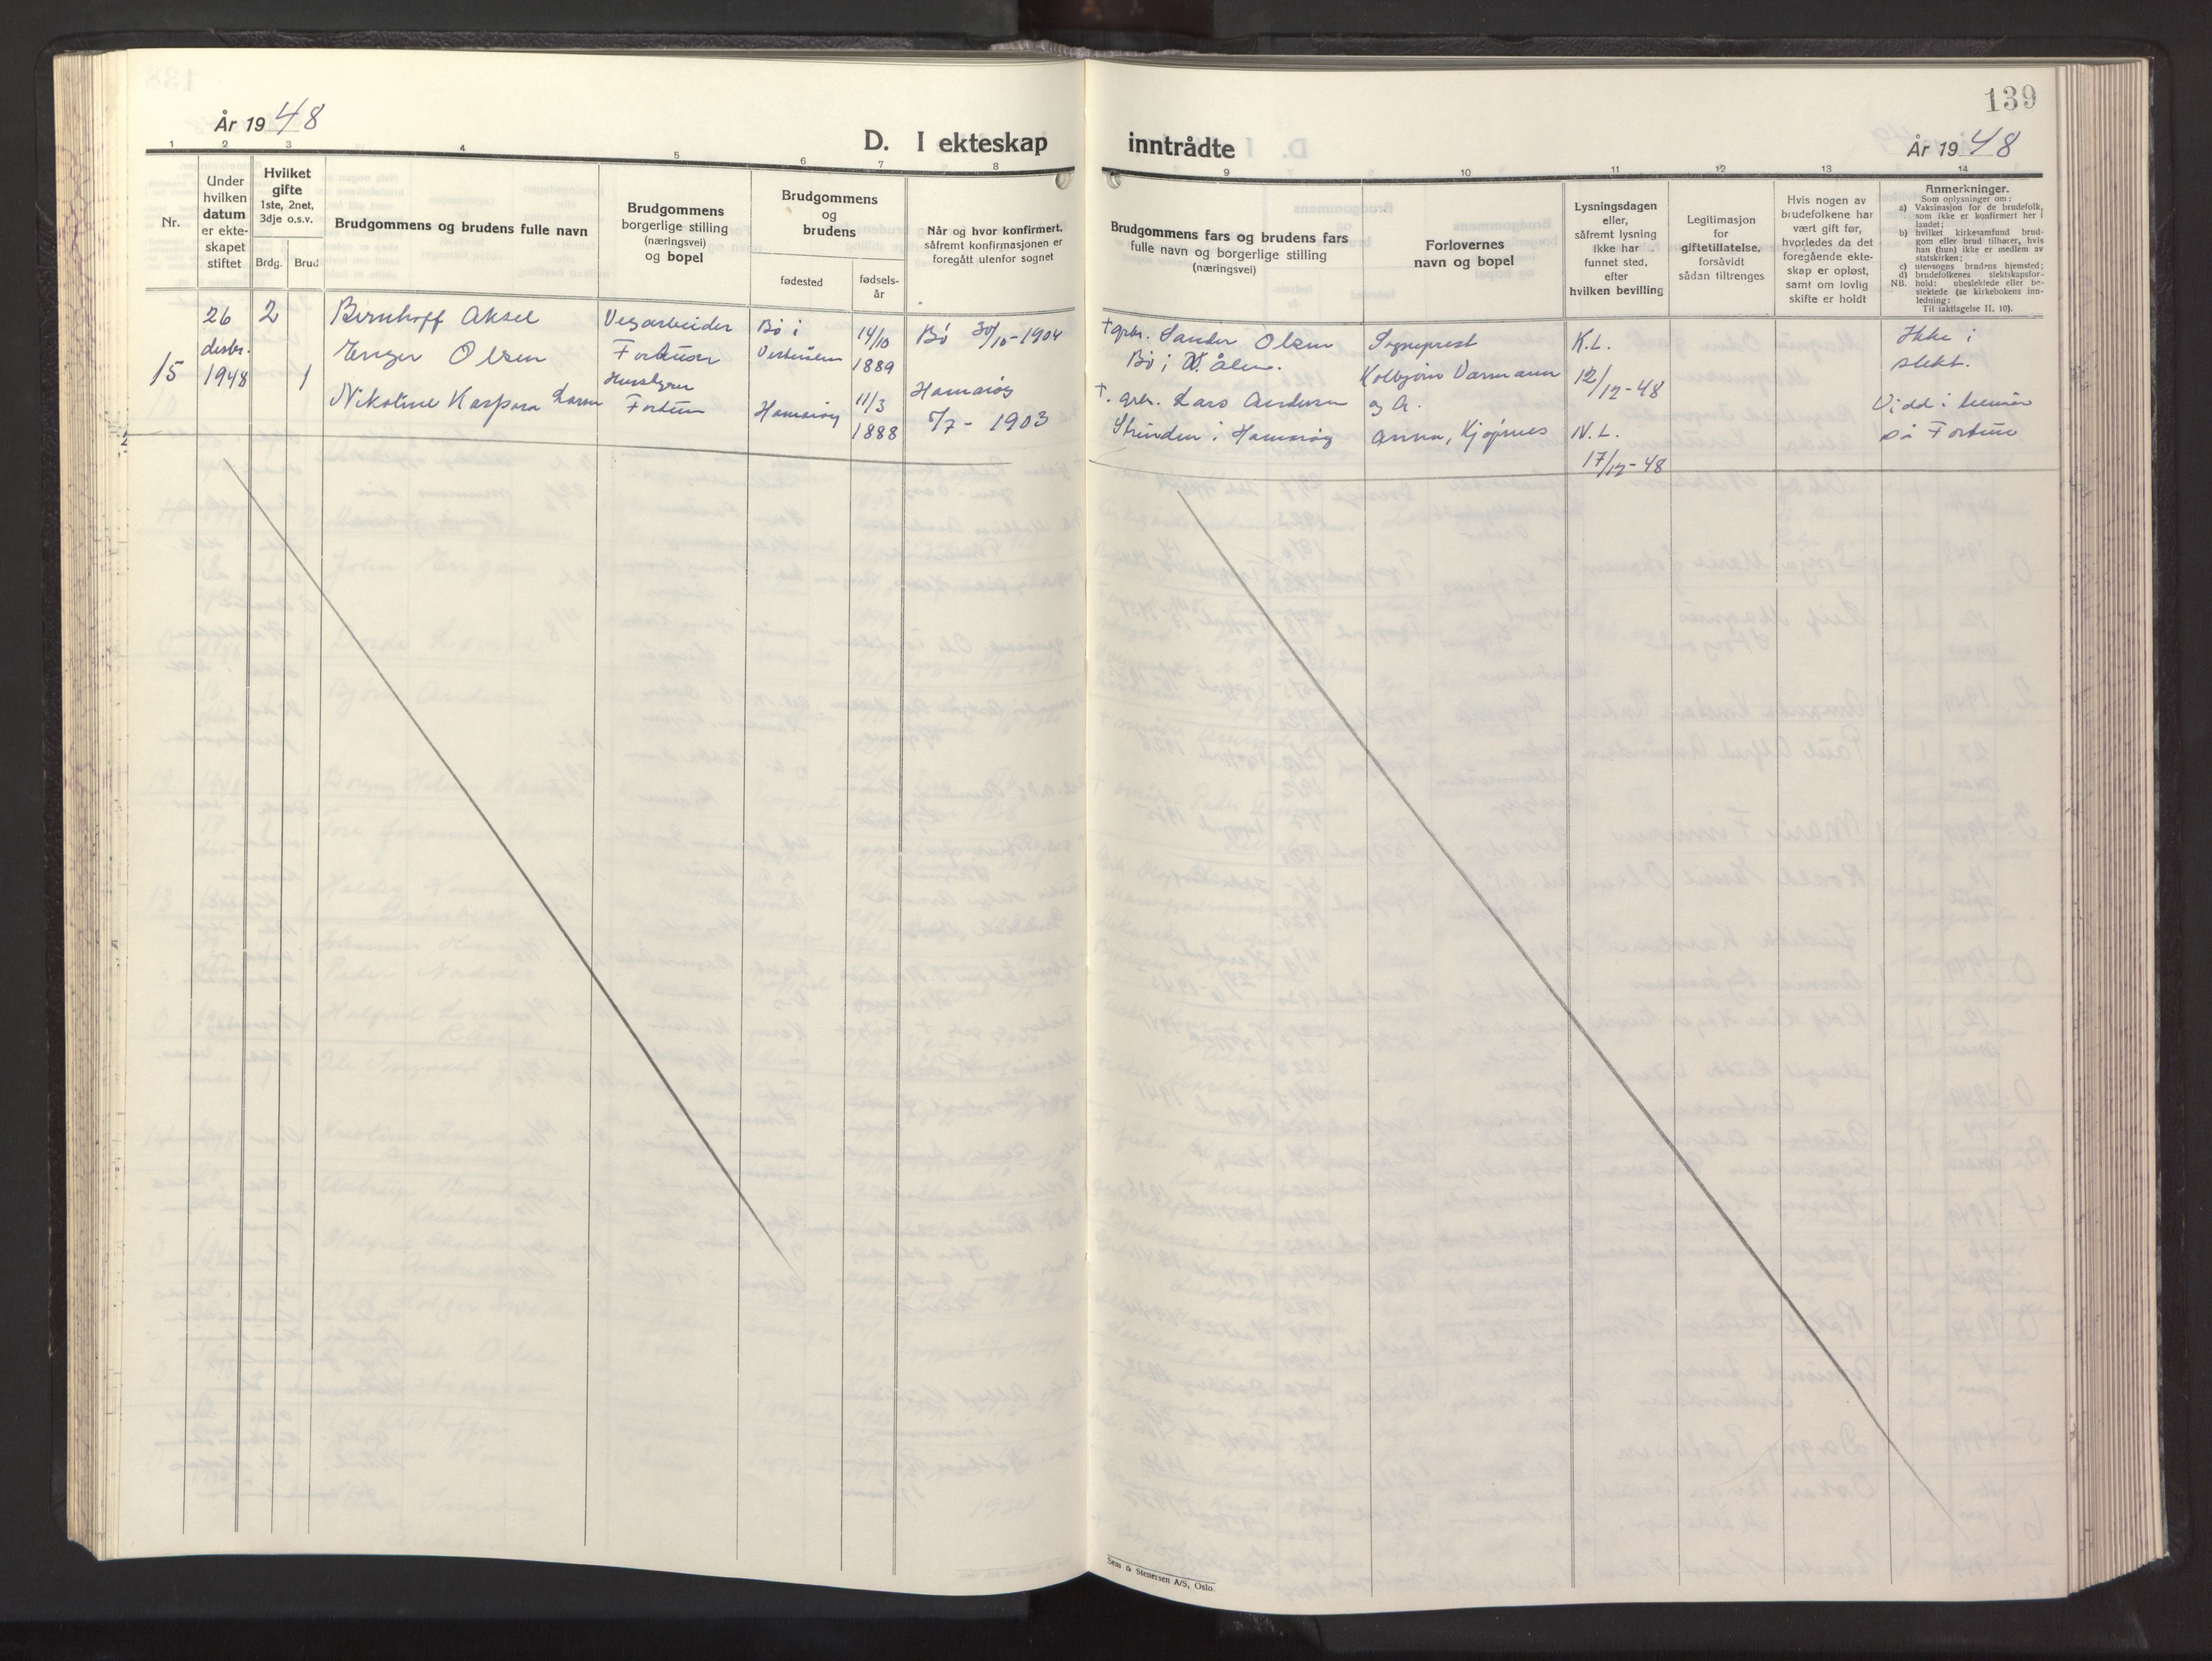 139
År 1948
D. I ekteskap
inntrådte
År 1948
1 2 3 4 5 6 7 8
9 10 11 12 13 14
Nr.
Under
hvilken
datum
er ekte-
skapet
stiftet
Hvilket
gifte
1ste, 2net,
3dje o.s.v.
Brdg.
Brud
Brudgommens og brudens fulle navn
Brudgommens
borgerlige stilling
(næringsvei)
og bopel
Brudgommens
og
brudens
fødested
fødsels-
år
Når og hvor konfirmert,
såfremt konfirmasjonen er
foregått utenfor sognet
Brudgommens fars og brudens fars
fulle navn og borgerlige stilling
(næringsvei)
Forlovernes
navn og bopel
Lysningsdagen
eller,
såfremt lysning
ikke har
funnet sted,
efter
hvilken bevilling
Legitimasjon
for
giftetillatelse,
forsåvidt
sådan tiltrenges
Hvis nogen av
brudefolkene har
vært gift før,
hvorledes da det
foregående ekte-
skap er opløst,
samt om lovlig
skifte er holdt
Anmerkninger.
Som oplysninger om:
a) Vaksinasjon for de brudefolk,
som ikke er konfirmert her i
landet;
b) hvilket kirkesamfund brud-
gom eller brud tilhører, hvis
han (hun) ikke er medlem av
statskirken;
c) utensogns brudens hjemsted;
d) brudefolkenes slektskapsfor-
NB. hold: ubeslektede eller be-
slektede (se kirkebokens inn-
ledning:
Til iakttagelse II, 10).
15
26
desbr.
1948
2
1
Bernhoff Aksel
Enger Olsen
Nikoline Kaspara Larsen
Vegarbeider
Fortun
Husstyrer
Fortun
Bø i
Vesterålen
Hamarøy
14/10
1889
11/3
1888
Bø 30/10-1904
Hamarøy
5/7 - 1903
† gbr. Sander Olsen
Bø i V. Ålen.
†. gbr. Lars Andersen
Strinden i Hamarøy
Sogneprest
Kolbjørn Varmann
og A.
Anna, Kjøpsnes
K.L.
12/12-48
N.L.
17/12-48
Ikke i
slekt.
Vidd i heimen
på Fortun
Sem & Stenersen A/S, Oslo.